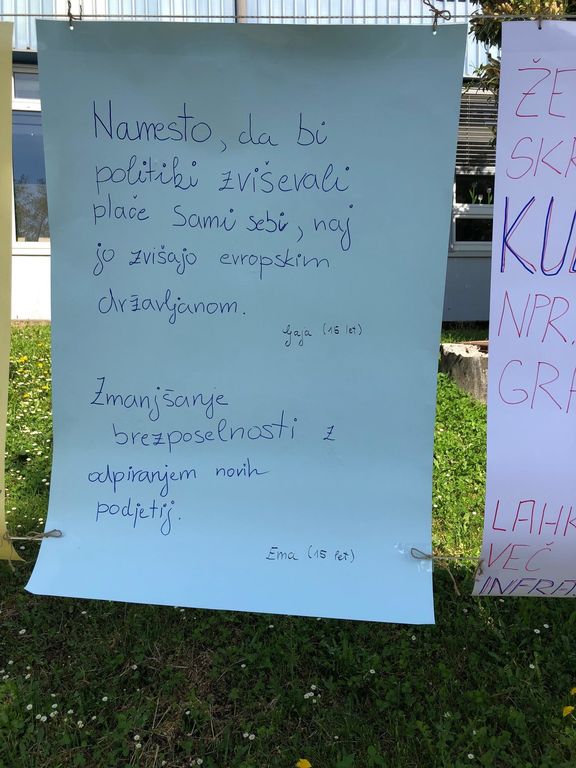 Namesto, da bi
politiki zviševali
plače sami sebi, naj
jo zvišajo evropskim
državljanom.
Gaja (15 let)
Zmanjšanje
brezposelnosti z
odpiranjem novih
podjetij.
Ema (15 let)
ŽE
SKR
KUL
NPR.
GRA
LAHK
VEČ
INFRA